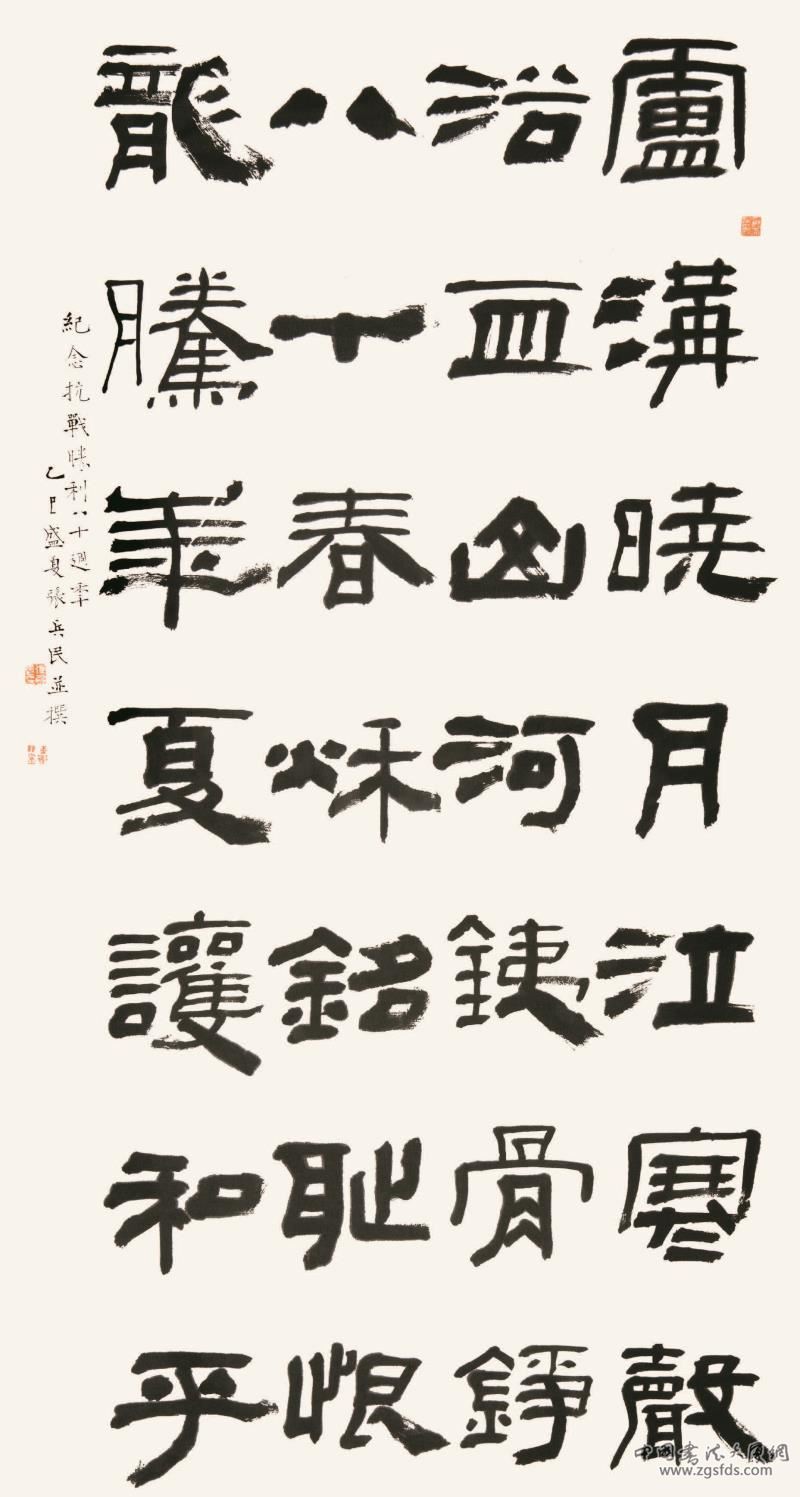 盧溝曉月泣寒聲
浴血山河銕骨錚
八十春秌銘耻恨
龍騰華夏護和平
紀念抗戰勝利八十週秊
乙巳盛夏張兵民並撰
www.zgsfds.com